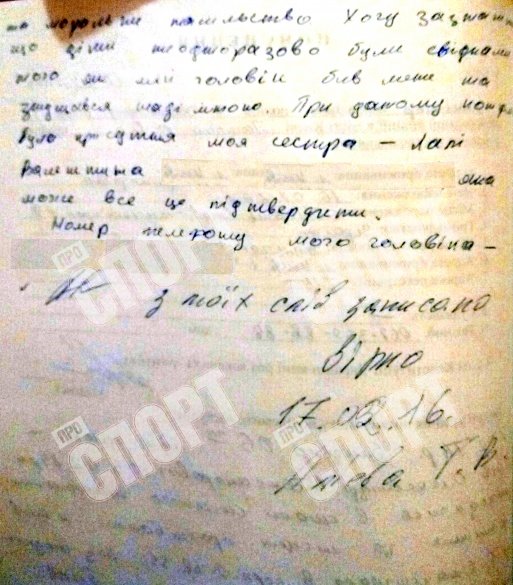 та моральне насильство. Хочу зазначити
що діти неодноразово були свідками
того як мій головік бив мене та
знущався наді мною. При даному
була присутня моя сестра –
Валентина яка
може все це підтвердити.
Номер телефону мого головіка –
з моїх слів записано
Вірно
17.08.16.
Т.В.
ПРО СПОРТ
ПРО СПОРТ
ПРО СПОРТ
ПРО СПОРТ